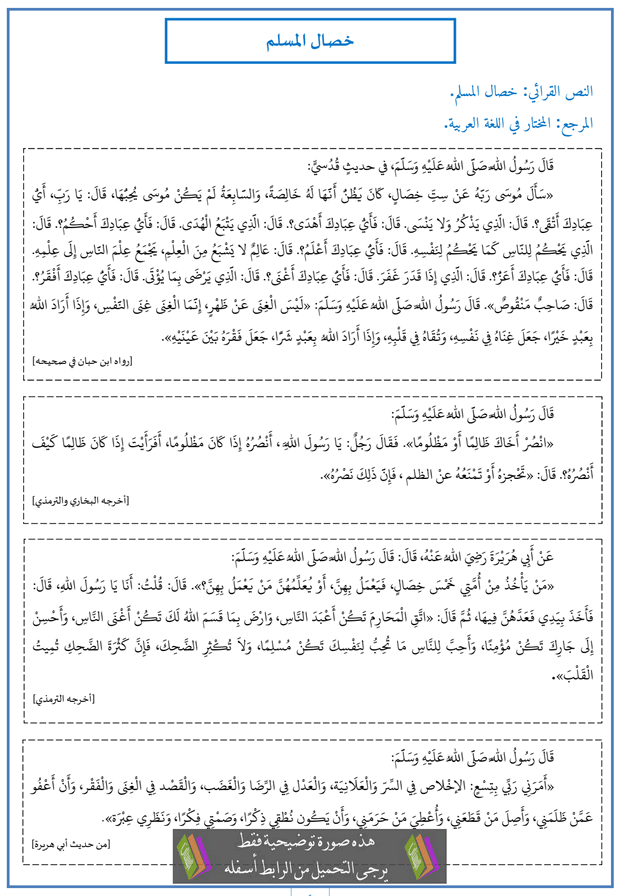 خصال المسلم
النص القرائي: خصال المسلم.
المرجع: المختار في اللغة العربية.
قَالَ رَسُولُ اللهِ صَلّى اللهُ عَلَيْهِ وَسَلَّمَ، في حديثٍ قُدُسيٍّ:
«سَأَلَ مُوسَى رَبَّهُ عَنْ سِتِّ خِصَالٍ، كَانَ يَظُنُّ أَنَّهَا لَهُ خَالِصَةً، وَالسّابِعَةُ لَمْ يَكُنْ مُوسَى يُحِبُّهَا، قَالَ: يَا رَبِّ، أَيُّ
عِبَادِكَ أَتْقَى؟. قَالَ: الَّذِي يَذْكُرُ وَلا يَنْسَى. قَالَ: فَأَيُّ عِبَادِكَ أَهْدَى؟. قَالَ: الَّذِي يَتْبَعُ الْهُدَى. قَالَ: فَأَيُّ عِبَادِكَ أَحْكُمُ؟. قَالَ:
الَّذِي يَحْكُمُ لِلنَّاسِ كَمَا يَحْكُمُ لِنَفْسِهِ. قَالَ: فَأَيُّ عِبَادِكَ أَعْلَمُ؟. قَالَ: عَالِمٌ لا يَشْبَعُ مِنَ الْعِلْمِ، يَجْمَعُ عِلْمَ النّاسِ إِلَى عِلْمِهِ.
قَالَ: فَأَيُّ عِبَادِكَ أَعَزُّ؟. قَالَ: الَّذِي إِذَا قَدَرَ غَفَرَ. قَالَ: فَأَيُّ عِبَادِكَ أَغْنَى؟. قَالَ: الَّذِي يَرْضَى بِمَا يُؤْتَى. قَالَ: فَأَيُّ عِبَادِكَ أَفْقَرُ؟.
قَالَ: صَاحِبٌ مَنْقُوصٌ». قَالَ رَسُولُ اللهِ صَلّى اللهُ عَلَيْهِ وَسَلَّمَ: «لَيْسَ الْغِنَى عَنْ ظَهْرٍ، إِنَّمَا الْغِنَى غِنَى النَّفْسِ، وَإِذَا أَرَادَ اللهُ
بِعَبْدٍ خَيْرًا، جَعَلَ غِنَاهُ فِي نَفْسِهِ، وَتُقَاهُ فِي قَلْبِهِ، وَإِذَا أَرَادَ اللهُ بِعَبْدٍ شَرًّا، جَعَلَ فَقْرَهُ بَيْنَ عَيْنَيْهِ».
[رواه ابن حبان في صحيحه]
قَالَ رَسُولُ اللهِ صَلّى اللهُ عَلَيْهِ وَسَلَّمَ:
«انْصُرْ أَخَاكَ ظَالِمًا أَوْ مَظْلُومًا». فَقَالَ رَجُلٌ: يَا رَسُولَ اللهِ، أَنْصُرُهُ إِذَا كَانَ مَظْلُومًا، أَفَرَأَيْتَ إِذَا كَانَ ظَالِمًا كَيْفَ
أَنْصُرُهُ؟. قَالَ: «تَحْجزهُ أَوْ تَمْنَعُهُ عنْ الظلم ، فَإِنّ ذَلِكَ نَصْرُهُ».
[أخرجه البخاري والترمذي]
عَنْ أَبِي هُرَيْرَةَ رَضِيَ اللهُ عَنْهُ، قَالَ: قَالَ رَسُولُ اللهِ صَلّى اللهُ عَلَيْهِ وَسَلَّمَ:
«مَنْ يَأْخُذُ مِنْ أُمَّتِي خَمْسَ خِصَالٍ، فَيَعْمَلُ بِهِنَّ، أَوْ يُعَلِّمُهُنَّ مَنْ يَعْمَلُ بِهِنَّ؟». قَالَ: قُلْتُ: أَنَا يَا رَسُولَ اللهِ، قَالَ:
فَأَخَذَ بِيَدِي فَعَدَّهُنَّ فِيهَا، ثُمَّ قَالَ: «اتَّقِ الْمَحَارِمَ تَكُنْ أَعْبَدَ النَّاسِ، وَارْضَ بِمَا قَسَمَ اللهُ لَكَ تَكُنْ أَغْنَى النَّاسِ، وَأَحْسِنْ
إِلَى جَارِكَ تَكُنْ مُؤْمِنًا، وَأَحِبَّ لِلنَّاسِ مَا تُحِبُّ لِنَفْسِكَ تَكُنْ مُسْلِمًا، وَلاَ تُكْثِرِ الضَّحِكَ، فَإِنَّ كَثْرَةَ الضَّحِكِ تُمِيتُ
الْقَلْبَ».
[أخرجه الترمذي]
قَالَ رَسُولُ اللهِ صَلّى اللهُ عَلَيْهِ وَسَلَّمَ:
«أَمَرَنِي رَبِّي بِتِسْعٍ: الإخْلاص فِي السِّرّ وَالْعَلَانِيَة، وَالْعَدْل فِي الرِّضَا وَالْغَضَب، وَالْقَصْد فِي الْغِنَى وَالْفَقْر، وَأَنْ أَعْفُو
عَمَّنْ ظَلَمَنِي، وَأَصِلَ مَنْ قَطَعَنِي، وَأُعْطِيَ مَنْ حَرَمَنِي، وَأَنْ يَكُون نُطْقِي ذِكْرًا، وَصَمْتِي فِكْرًا، وَنَظَرِي عِبْرَة».
[من حديث أبي هريرة]
هذه صورة توضيحية فقط
يرجى التحميل من الرابط أسفله